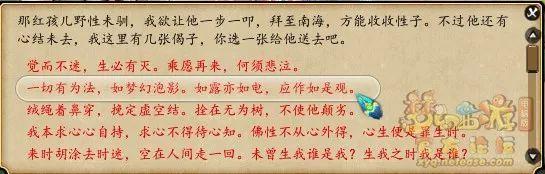 那红孩儿野性未驯，我欲让他一步一叩，拜至南海，方能收收性子。不过他还有
心结未去，我这里有几张偈子，你选一张给他送去吧。
觉而不迷，生必有灭。乘愿再来，何须悲泣。
一切有为法，如梦幻泡影。如露亦如电，应作如是观。
绒绳着鼻穿，挽定虚空结。拴在无为树，不使他颠劣。
我本求心心自持，求心不得待心知。佛性不从心外得，心生便是罪生时。
来时糊涂去时迷，空在人间走一回。未曾生我谁是我？生我之时我是谁？
梦幻西游
xyq.netease.com